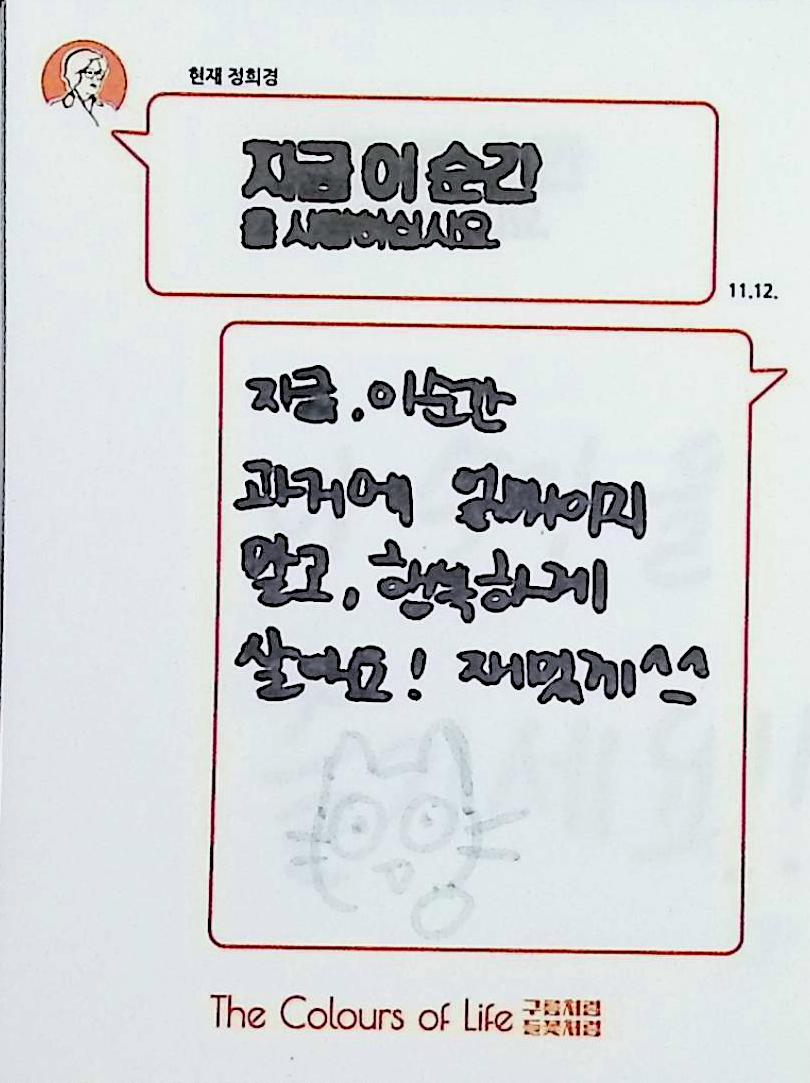 현재 정희경
지금 이 순간
을 사랑하십시오
11.12.
지금, 이순간
과거에 얽매이지
말고, 행복하게
살아요! 재밌게^^
The Colours of Life 구름처럼
들꽃처럼